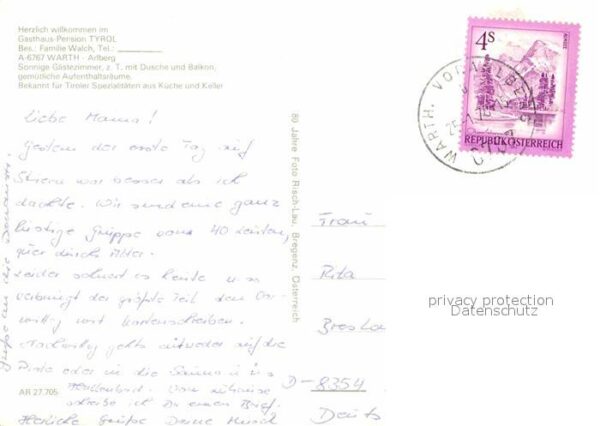 Herzlich willkommen im
Gasthaus-Pension TYROL
Bes.: Familie Walch, Tel.:
A-6767 WARTH - Arlberg
Sonnige Gästezimmer, z. T. mit Dusche und Balkon,
gemütliche Aufenthaltsräume.
Bekannt für Tiroler Spezialitäten aus Küche und Keller
Liebe Mama!
Gestern der erste Tag auf
Skiern war besser als ich
dachte. Wir sind eine ganz
lustige Gruppe von 40 Leuten,
quer durchs Alter.
Leider schneit es heute u.
verbringt der größte Teil den Vor-
mittag mit Kartenschreiben.
Nachmittag gehts entweder auf die
Piste oder in die Sauna u. ins
Hallenbad. Von zuhause
schreibe ich Dir einen Brief.
Herzliche Grüße Deine
Grüße an die
AR 27.705
80 Jahre Foto Risch-Lau, Bregenz, Österreich
4S
REPUBLIK ÖSTERREICH
WARTH, VORARLBERG
Frau
Rita
D-8354
privacy protection
Datenschutz